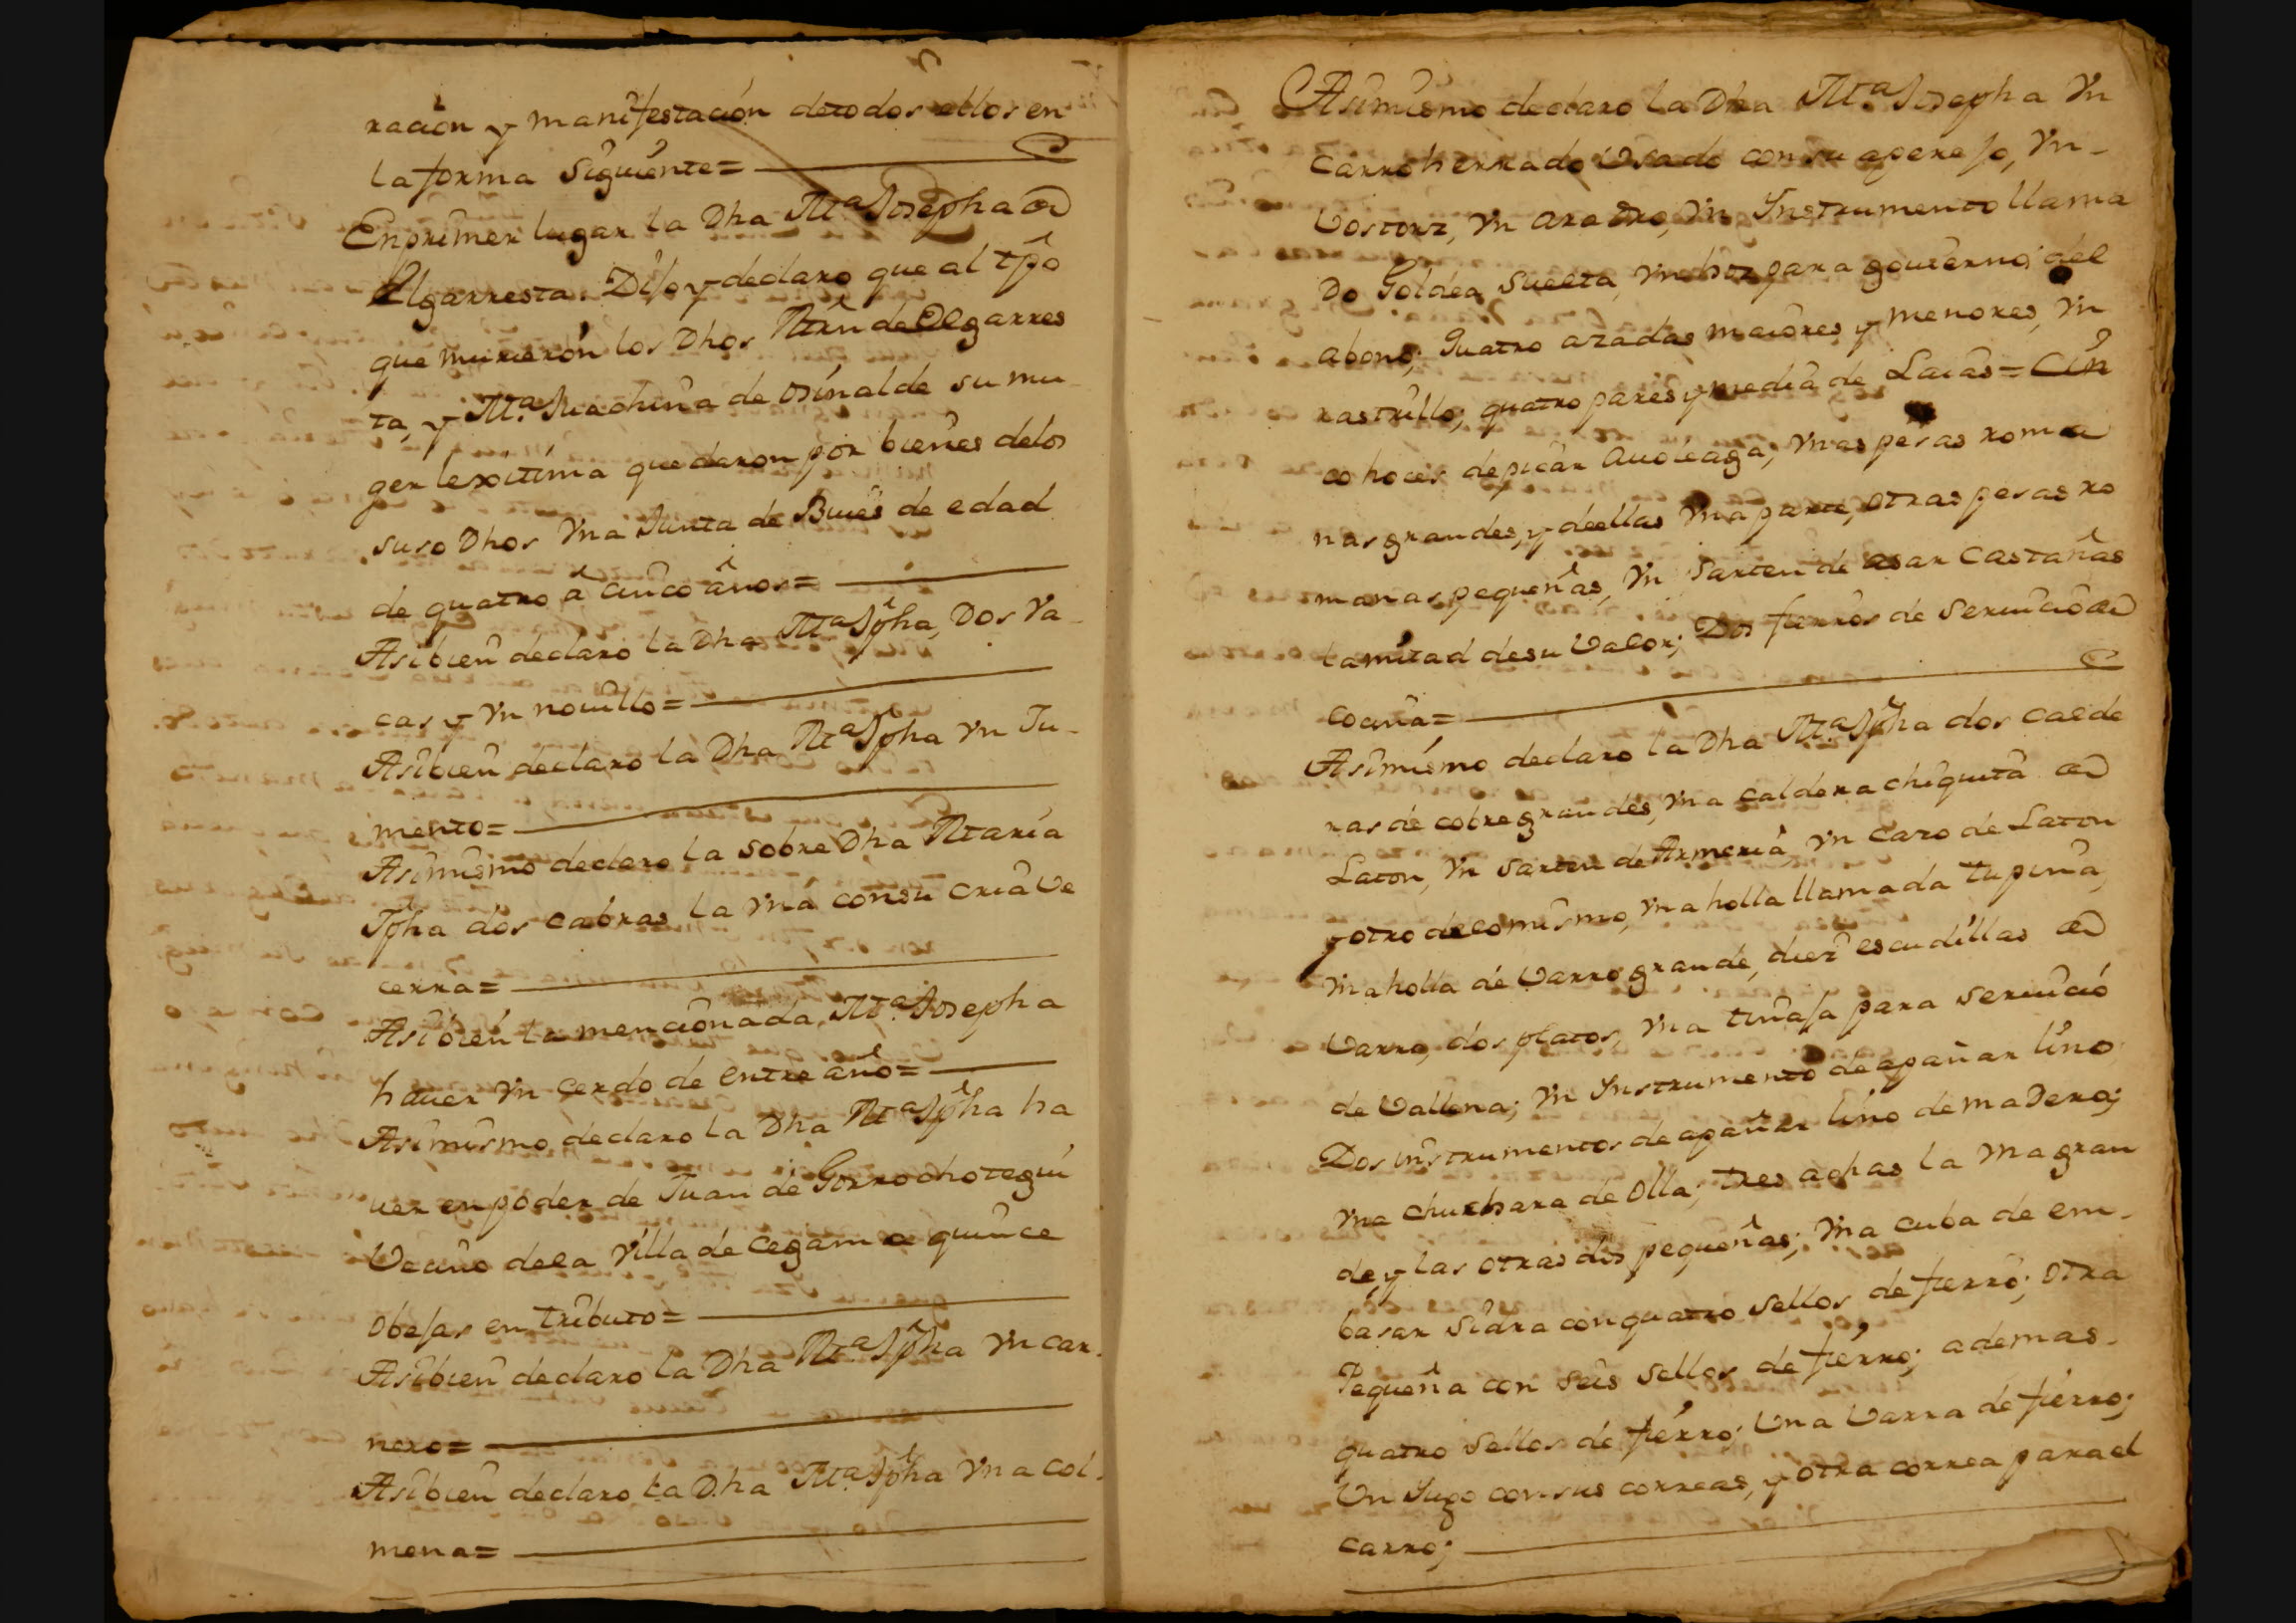 racion y manifestación detodos ellos en
la forma siguiente=
En primer lugar la Dha Mª Josepha de
Elgarresta. Dijo y declaro que al tpo
que murieron los Dhos Mrn de Elgarres
ta, y Mª Juachina de Osinalde su mu
ger lexitima quedaron por bienes delos
suso Dhos Vna Junta de Bueis de edad
de quatro â cinco años=
Asibien declaro la Dha Mª Jpha, Dos Va
cas y Vn novillo=
Asibien declaro la Dha Mª Jpha Vn Ju-
mento=
Asimismo declaro la sobre Dha Maria
Jpha dos cabras la Vna con su cria Ve
cerra=
Asibien la mencionada, Mª Josepha
hauer Vn cerdo de entre año=
Asimismo declaro la Dha Mª Jpha ha
uer en poder de Juan de Gorrochotegui
Vecino dela Villa de Cegama quince
obejas en tributo=
Asibien declaro la Dha Mª Jpha Vn car-
nero=
Asibien declaro la Dha Mª Jpha Vna col-
mena=
Asimismo declaro la Dha Mª Josepha Vn
carro herrado Vsado con su aperejo, Vn-
Vostorz, Vn aradro, Vn Instrumento llama
Do Goldea suelta, Vn hoz para gouierno del
abono; Quatro azadas maiores y menores, Vn
rastrillo; quatro pares y media de Laias= Cin
co hoces de picar Auoleaga; Vnas pesas roma
nas grandes, y deellas Vna parte, otras pesas ro
manas pequeñas, Vn Sarten de asar Castañas
la mitad de su Valor; Dos fierros de seruicio de
cocina=
Asimismo declaro la Dha Mª Jpha dos calde
ras de cobre grandes, Vna caldera chiquita de
Laton, Vn sarten de Armeria, Vn cazo de Laton
y otro de lo mismo, Vna holla llamada tupina,
Vna holla de Varro grande, diez escudillas de
Varro, dos platos, Vna tinaja para seruicio
de Vallena; Vn Instrumento de apañar lino
Dos instrumentos de apañar lino de madera;
Vna chuchara de olla; tres achas la Vna gran
de, y las otras dos pequeñas; Vna cuba de em-
basar sidra con quatro sellos de fierro; otra
Pequeña con seis sellos de fierro; ademas-
quatro sellos de fierro; Una Varra de fierro;
Un Jugo con sus correas, y otra correa para el
carro;